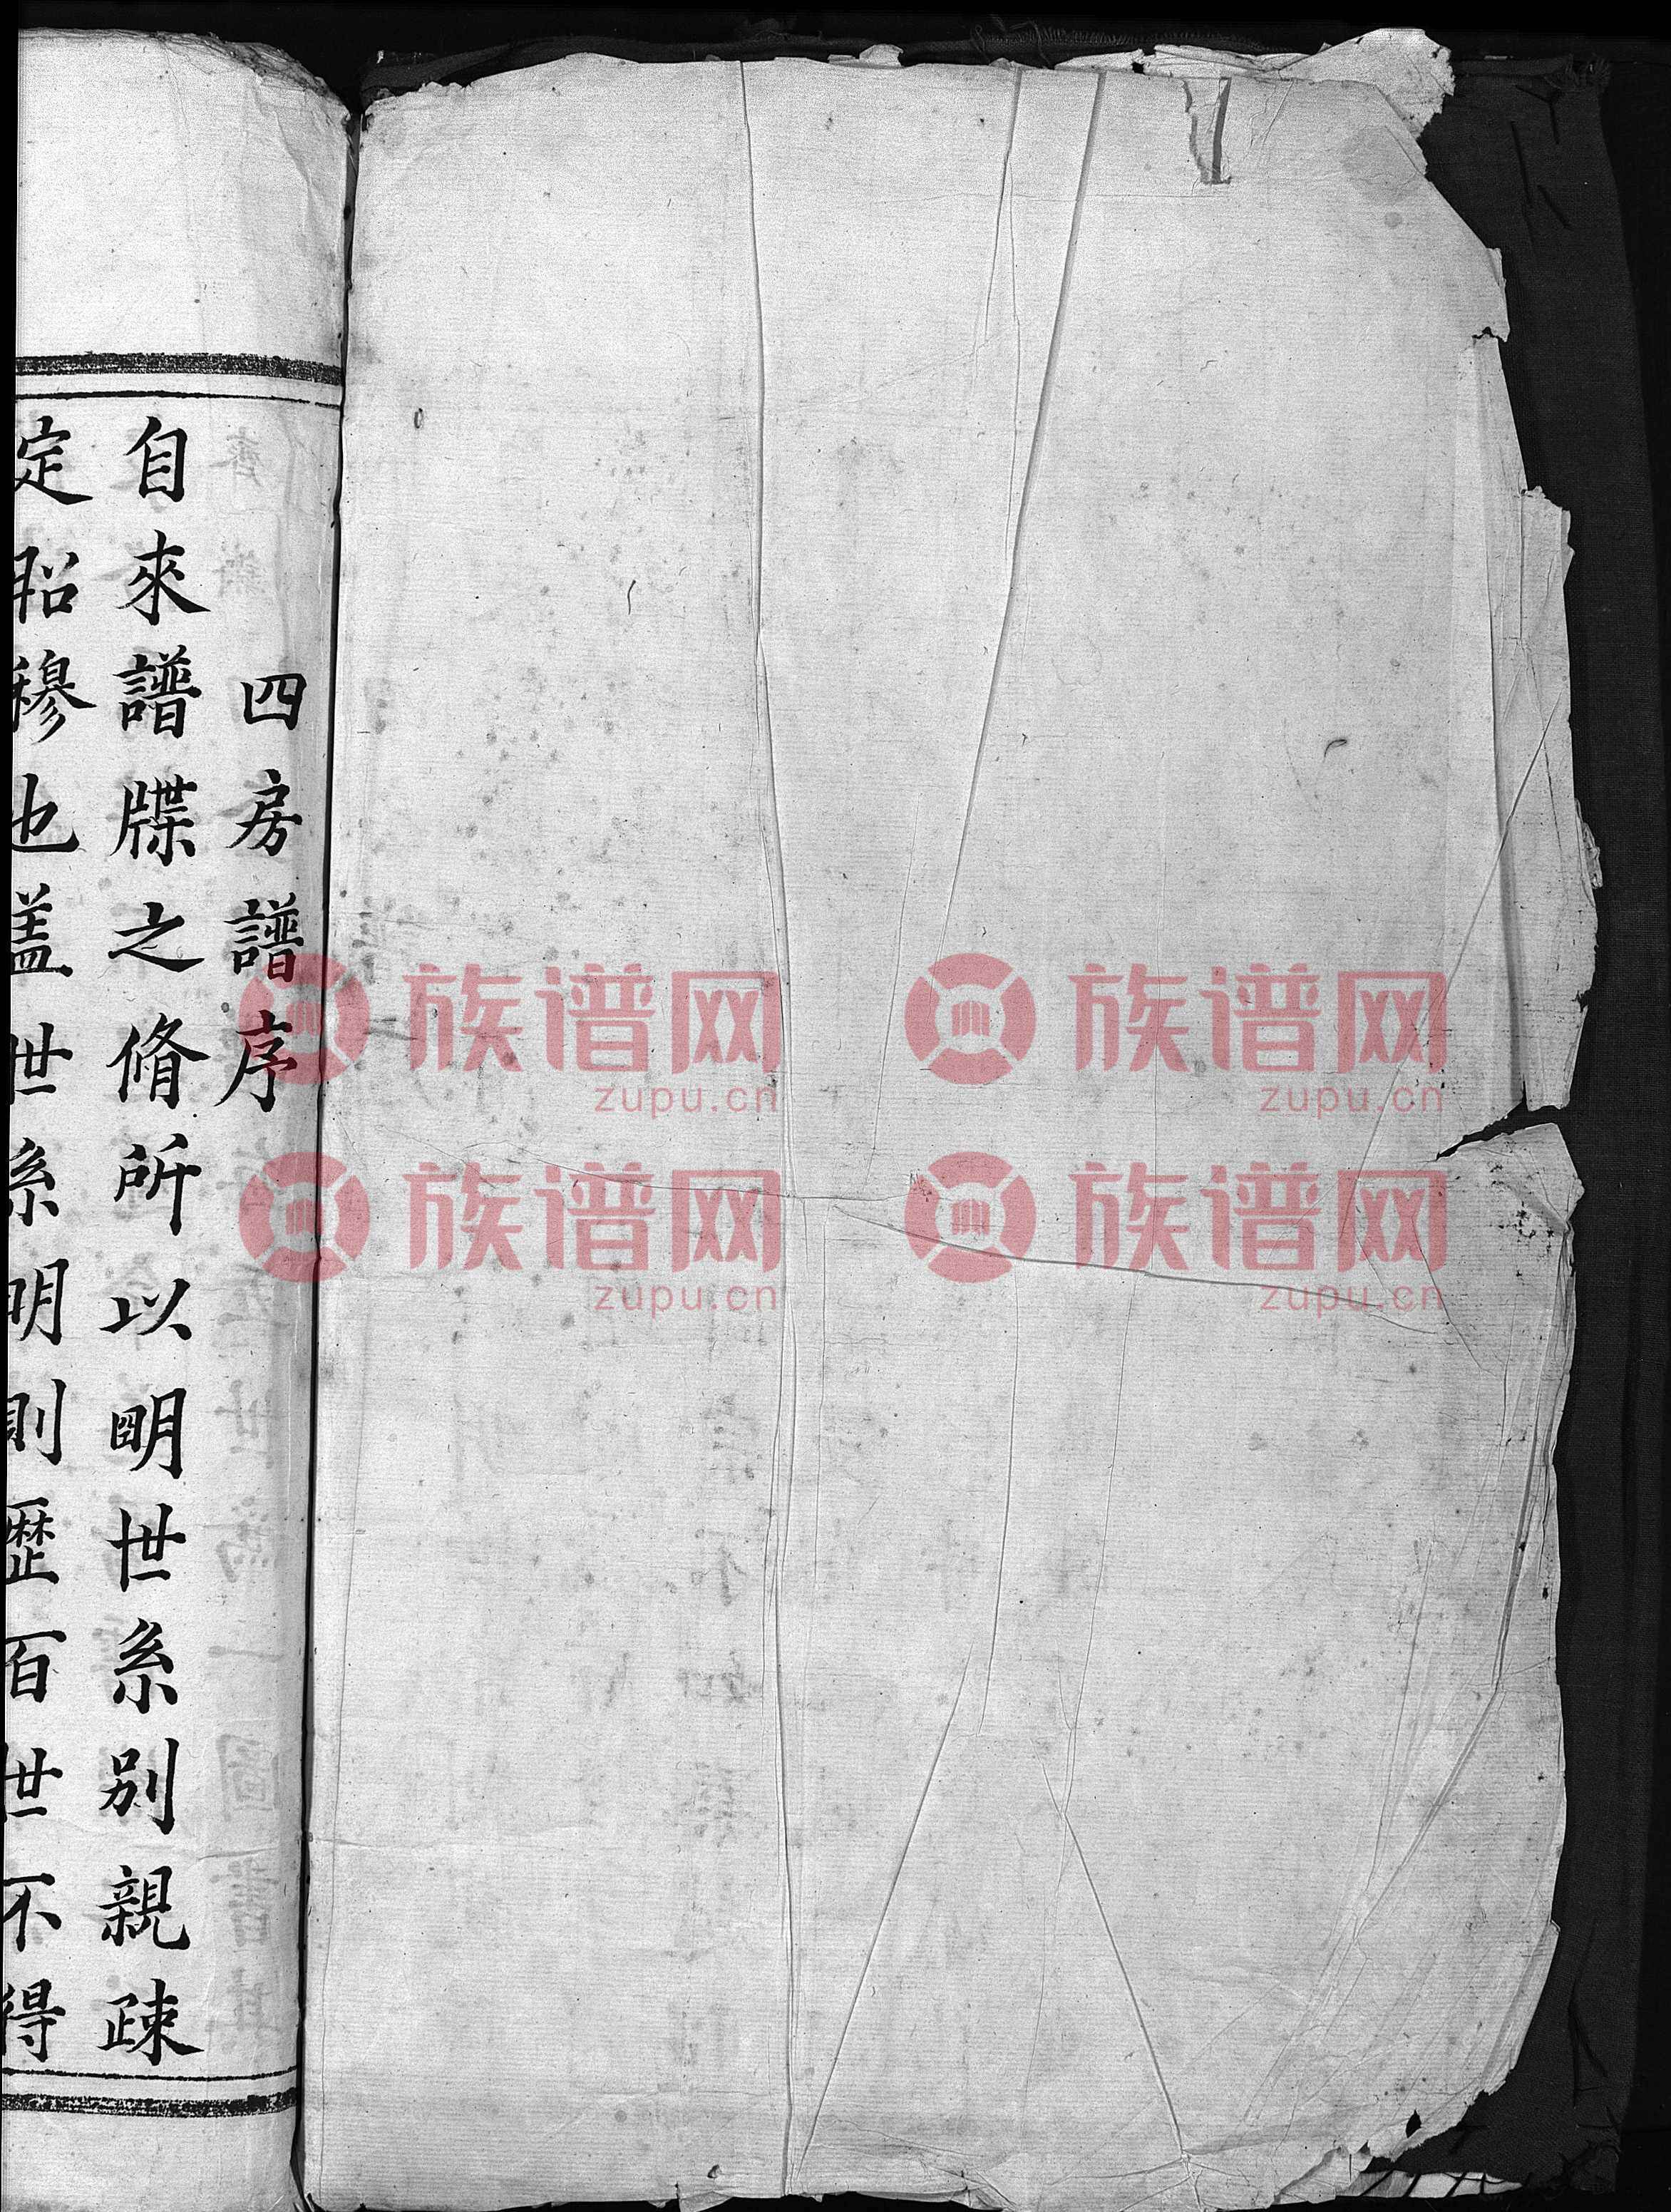 四房譜序
自來譜牒之脩所以明世系別親疎
定昭穆也蓋世系明則歷百世不得
族谱网
zupu.cn
族谱网
zupu.cn
族谱网
zupu.cn
族谱网
zupu.cn